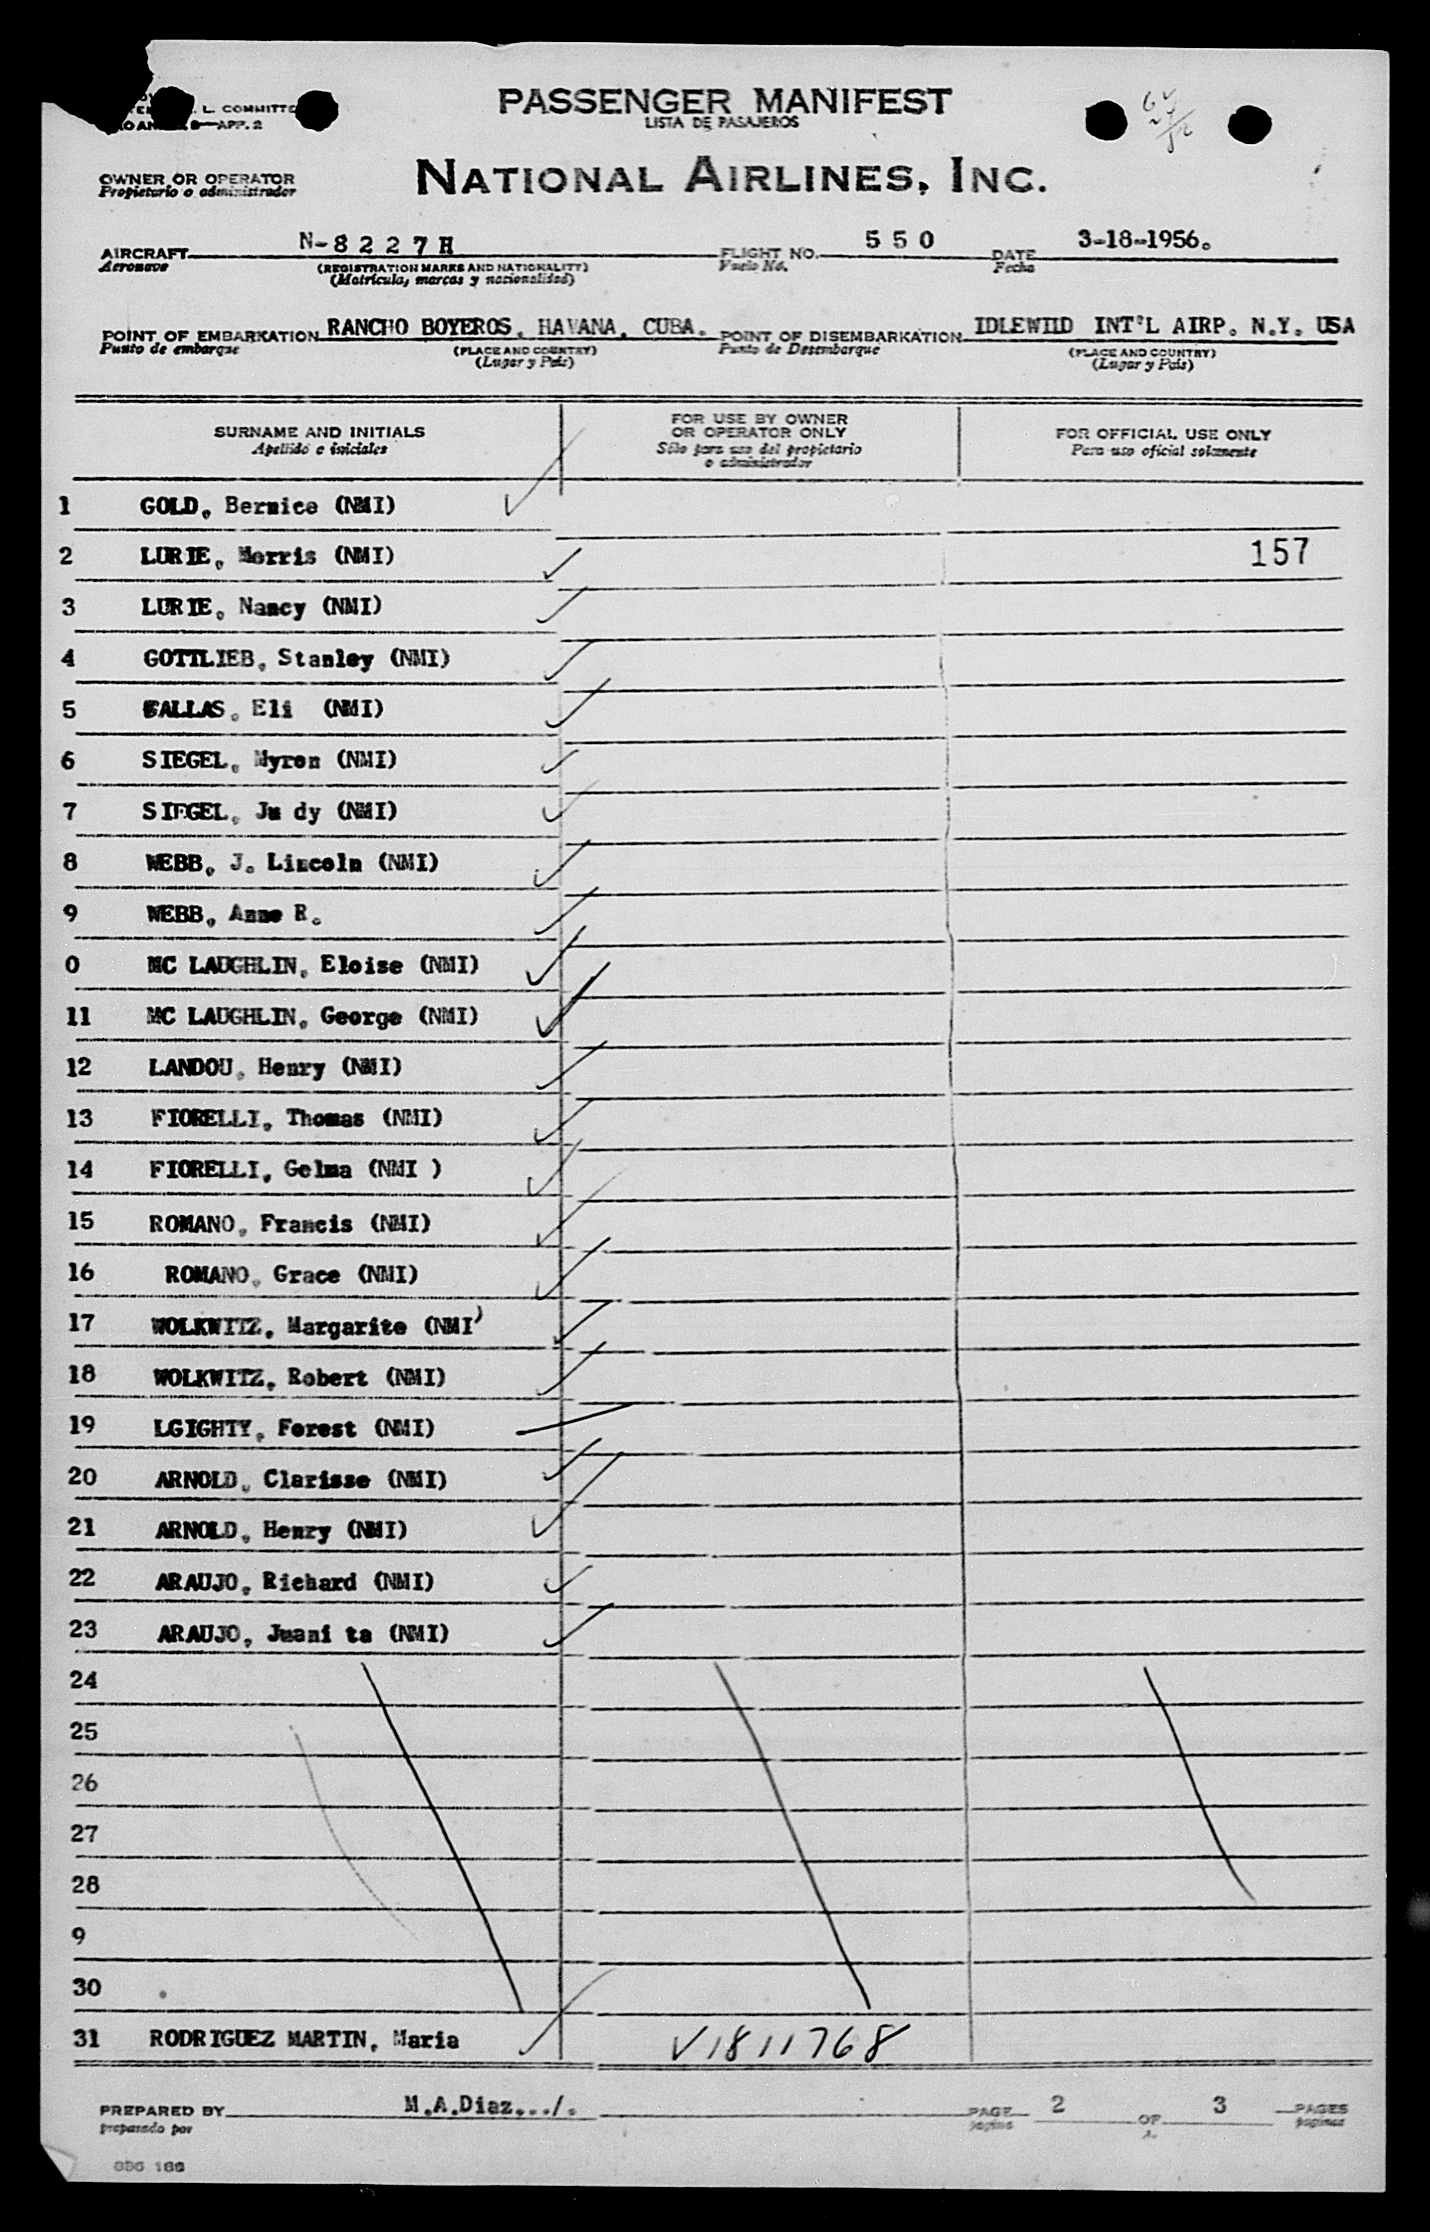 L. COMMITTE
APP. 2
PASSENGER MANIFEST
LISTA DE PASAJEROS
OWNER OR OPERATOR
Propietario o administrador
NATIONAL AIRLINES, INC.
AIRCRAFT N-8 2 2 7 H FLIGHT NO. 5 5 0 DATE 3-18-1956.
Aeronave (REGISTRATION MARKS AND NATIONALITY) Vuelo No. Fecha
(Matricula, marcas y nacionalidad)
POINT OF EMBARKATION RANCHO BOYEROS, HAVANA, CUBA. POINT OF DISEMBARKATION IDLEWILD INT'L AIRP. N.Y. USA
Punto de embarque (PLACE AND COUNTRY) Punto de Desembarque (PLACE AND COUNTRY)
(Lugar y País) (Lugar y País)
SURNAME AND INITIALS FOR USE BY OWNER OR OPERATOR ONLY FOR OFFICIAL USE ONLY
Apellido e iniciales Sólo para uso del propietario o administrador Para uso oficial solamente
1 GOLD, Bernice (NMI)
2 LURIE, Morris (NMI) 157
3 LURIE, Nancy (NMI)
4 GOTTLIEB, Stanley (NMI)
5 Eli (NMI)
6 SIEGEL, Myron (NMI)
7 SIEGEL, Ju dy (NMI)
8 WEBB, J. Lincoln (NMI)
9 WEBB, Anne R.
0 MC LAUGHLIN, Eloise (NMI)
11 MC LAUGHLIN, George (NMI)
12 LANDOU, Henry (NMI)
13 FIORELLI, Thomas (NMI)
14 FIORELLI, Gelma (NMI )
15 ROMANO, Francis (NMI)
16 ROMANO, Grace (NMI)
17 WOLKWITZ, Margarite (NMI)
18 WOLKWITZ, Robert (NMI)
19 LGIGHTY, Forest (NMI)
20 ARNOLD, Clarisse (NMI)
21 ARNOLD, Henry (NMI)
22 ARAUJO, Richard (NMI)
23 ARAUJO, Juani ta (NMI)
24
25
26
27
28
9
30
31 RODRIGUEZ MARTIN, Maria V1811768
PREPARED BY M.A.Diaz.../. PAGE 2 OF 3 PAGES
preparado por página paginas